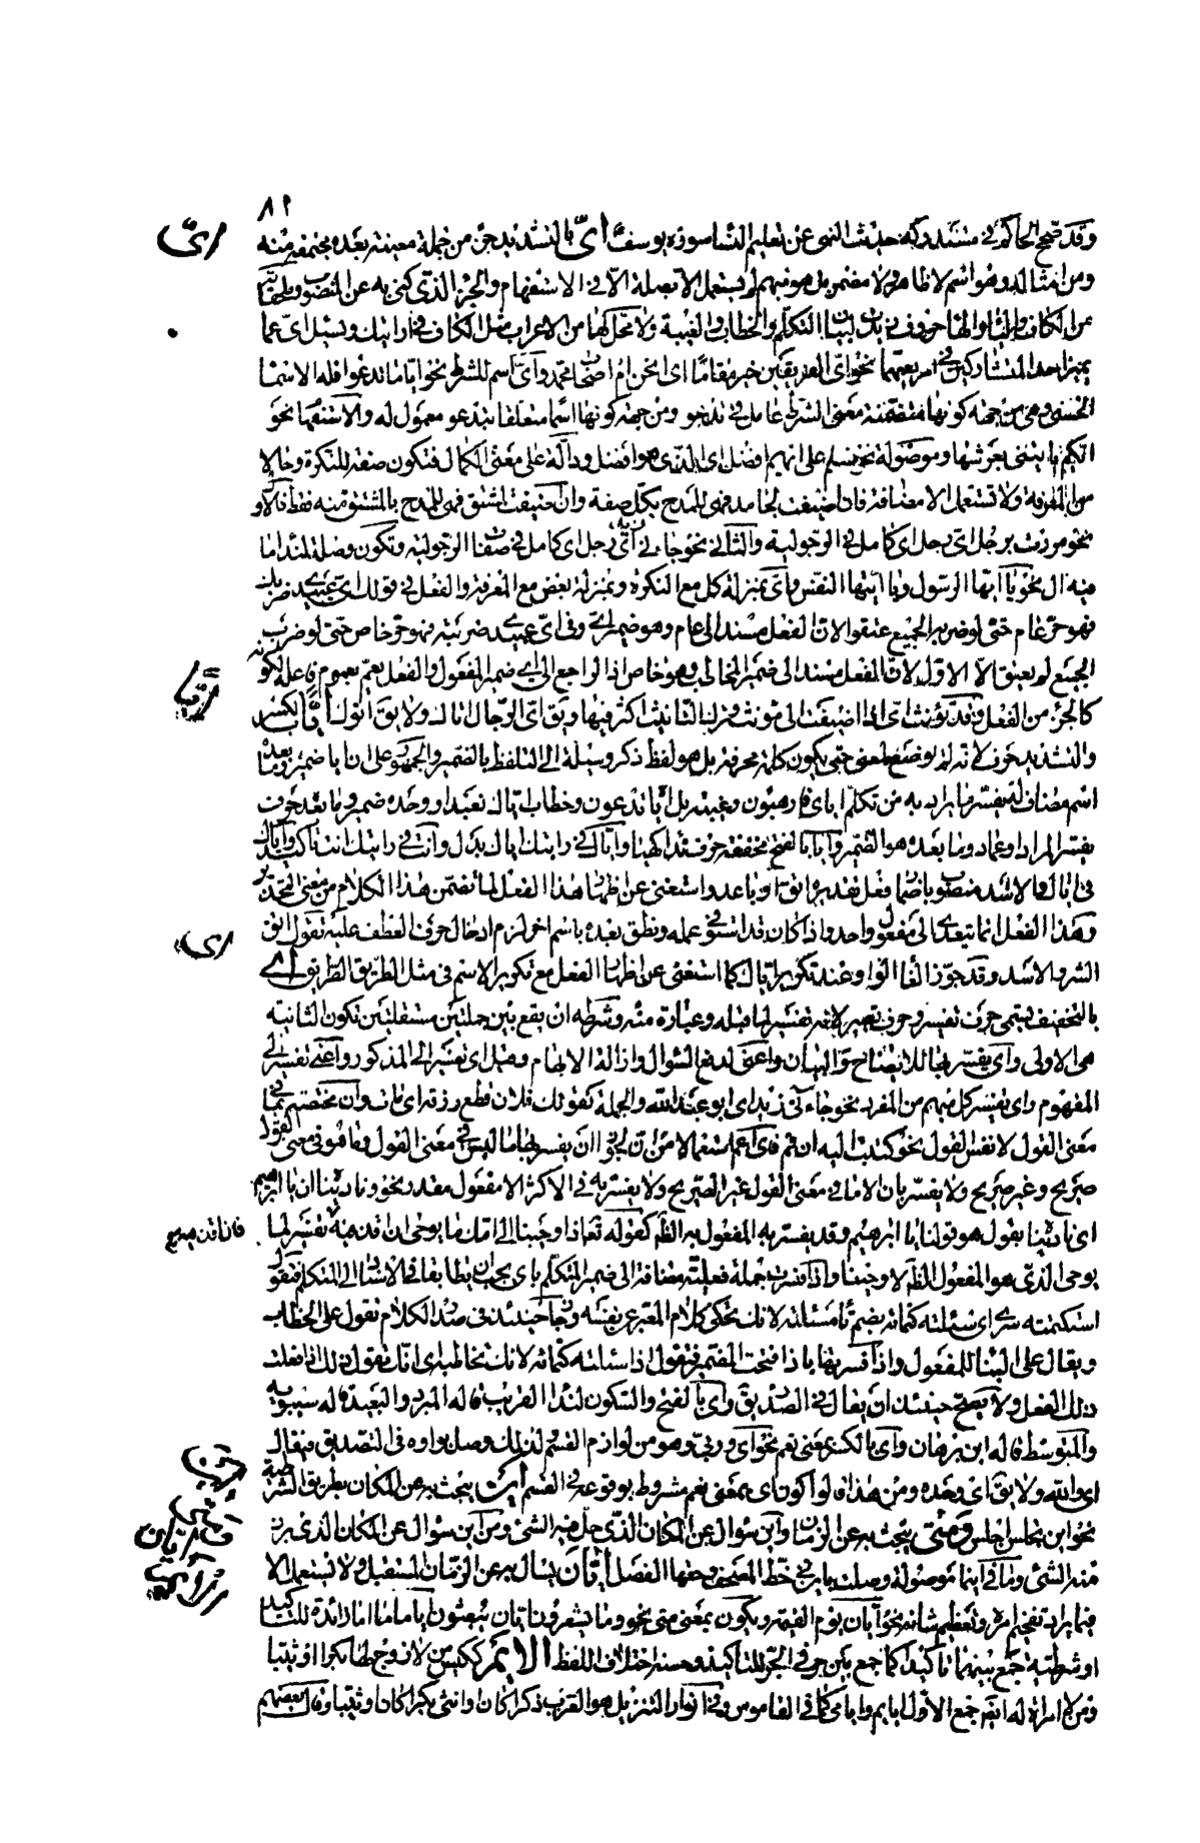 ٨٩
وقد صحح الحاكم في مستدركه حديث النهى عن تعليم النساء سورة يوسف أىّ بالتشديد جزء من جملة معينة بعده مجتمعة منه
أىّ
ومن امثاله وهو اسم لا ظاهر ولا مضمر بل هو مبهم لم يستعمل الا بصلة الا في الاستفهام والجزاء الذى كنى به عن المنصوب
من الكاف والياء والهاء حروف زيدت لبيان التكلم والخطاب والغيبة ولا محل لها من الاعراب مثل الكاف في ارايتك ويسئل اى عما
يميز احد المتشاركين في امر يعمهما نحو اى الفريقين خير مقاما اى انحن ام اصحاب محمد واى اسم للشرط نحو اياما تدعوا فله الاسماء
الحسنى وهى من جهة كونها متضمنة معنى الشرط عامل في تدعو ومن جهة كونها اسما متعلقا بتدعو معمول له والاستفهام نحو
ايكم ياتينى بعرشها وموصولة نحو سلم على ايهم افضل اى الذى هو افضل ودالة على معنى الكمال فتكون صفة للنكرة وحالا
من المعرفة ولا تستعمل الا مضافة فان اضيفت لجامد فهى للمدح بكل صفة وان اضيفت لمشتق فهى للمدح بالمشتق منه فقط فالاول
نحو مررت برجل اى رجل اى كامل في الرجولية والثانى نحو جاءنى زيد اى رجل اى كامل في صفات الرجولية وتكون وصلة لنداء ما
فيه ال نحو يا ايها الرسول ويا ايتها النفس واى بمنزلة كل مع النكرة وبمنزلة بعض مع المعرفة والفعل في قولك اى عبيدى ضربك
فهو حر عام حتى لو ضربه الجميع عتقوا لان الفعل مسند الى عام وهو ضمير اى وفى اى عبيدى ضربته فهو حر خاص حتى لو ضرب
الجميع لم يعتق الا الاول لان الفعل مسند الى ضمير المخاطب وهو خاص اذ الراجع الى اى ضمير المفعول والفعل يعم بعموم فاعله لكونه
ايّا
كالجزء من الفعل وقد تؤنث اى اذا اضيفت الى مونث وترك التانيث اكثر فيها ويق اى الرجال اتاك ولا يق اتوك ايّا بالكسر
والتشديد لم يوضع لمعنى حتى يكون كلمة محرفة بل هو لفظ ذكر وسيلة الى التلفظ بالضمير والجمهور على ان ايا ضمير وما بعده
اسم مضاف له يفسر ما يراد به من تكلم اياى فارهبون وغيبة بل اياه تدعون وخطاب اياك نعبد او وحده ضمير وما بعده حرف
يفسر المراد او عماد وما بعده هو الضمير وايا بالفتح مخففة حرف نداء كهيا واياك في رايتك اياك بدل وانت في رايتك انت تاكيد واياك
في اياك والاسد منصوب باضمار فعل تقديره اتق او باعد واستغنى عن اظهار هذا الفعل لما تضمن هذا الكلام من معنى التحذير
وهذا الفعل انما يتعدى الى مفعول واحد واذا كان قد استوفى عمله ونطق بعده باسم اخر لزم ادخال حرف العطف عليه تقول اتق
الشر والاسد وقد جوز الغاء الواو عند تكرير اياك كما استغنى عن اظهار الفعل مع تكرير الاسم في مثل الطريق الطريق اى
اى
بالتخفيف يسمى حرف تفسير وحرف تعبير لانه تفسير لما قبله وعبارة منه وشرطه ان يقع بين جملتين مستقلتين تكون الثانية
هى الاولى واى يفسر بها للايضاح والبيان واعنى لدفع السؤال وازالة الابهام وقيل اى تفسير الى المذكور واعنى تفسير الى
المفهوم واى تفسير كل مبهم من المفرد نحو جاءنى زيد اى ابو عبد الله والجملة كقولك فلان قطع رزقه اى مات وان مختصة بما في
معنى القول لا نفس القول نحو كتبت اليه ان قم فاى اعم استعمالا من ان لجواز ان يفسر بها ما ليس في معنى القول وما هو في معنى القول
صريح وغير صريح ولا يفسر بان الا ما في معنى القول غير الصريح ولا يفسر به في الاكثر الا مفعول مقدر نحو وناديناه ان يا ابرهيم
اى نادينا بقول هو قولنا يا ابرهيم وقد يفسر به المفعول به الظاهر كقوله تعالى اذ اوحينا الى امك ما يوحى ان اقذفيه تفسير لما
يوحى الذى هو المفعول الظاهر لاوحينا واذا فسرت جملة فعلية مضافة الى ضمير المتكلم باى يجب ان يطابقا في الاسناد الى المتكلم فتقول
استكتمته سرى اى سئلته كتمانه بضم تاء سئلته لانك تحكى كلام المعبر عن نفسه وجاز حينئذ في صدر الكلام تقول على الخطاب
ويقال على البناء للمفعول واذا فسرتها باذا فتحت الضمير فتقول اذا سئلته كتمانه لانك تخاطبه اى انك تقول ذلك اذا فعلت
ذلك الفعل ولا يصح حينئذ ان يقال في الصدر يق واى بالفتح والسكون لنداء القريب قاله المبرد والبعيد قاله سيبويه
والمتوسط قاله ابن برهان واى بالكسر بمعنى نعم نحو اى وربى وهو من لوازم القسم لذلك وصل بواوه في التصديق فيقال
اى والله ولا يق اى وحده ومن هذا لو اكون اى بمعنى نعم مشروط بوقوعه في القسم اين يبحث به عن المكان بطريق الشرطية
اين
نحو اين تجلس اجلس ومتى يبحث به عن الزمان واين سؤال عن المكان الذى حل فيه الشئ ومن اين سؤال عن المكان الذى برز
منه الشئ وما في اينما موصولة وصلت باين في خط المصحف وحقها الفصل ايّان يسال به عن الزمان المستقبل ولا تستعمل الا
فيما يراد تفخيم امره وتعظيم شانه نحو ايان يوم القيمة ويكون بمعنى متى نحو وما يشعرون ايان يبعثون اياما ما اما زائدة للتاكيد
او شرطية جمع بينهما تاكيدا كما جمع بين حرفى الجر للتاكيد وحسنه اختلاف اللفظ الايّم ككيس من لا زوج لها بكرا او ثيبا
ومن لا امراة له ايضا جمع الاول ايايم وايامى كما في القاموس وفي انوار التنزيل هو العزب ذكرا كان او انثى بكرا كان او ثيبا وقال بعضهم